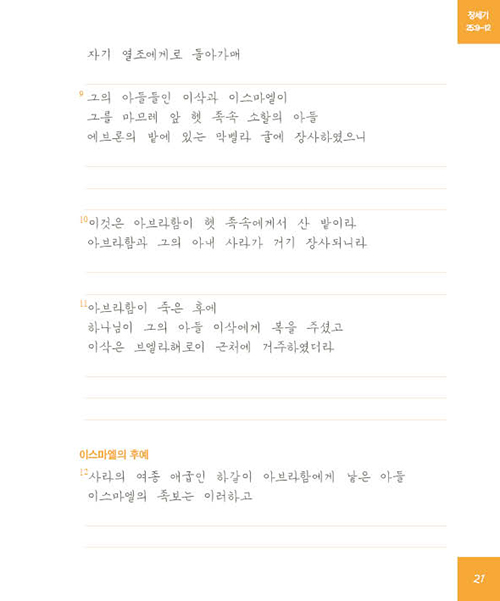 창세기
25:9-12
자기 열조에게로 돌아가매
9 그의 아들들인 이삭과 이스마엘이
그를 마므레 앞 헷 족속 소할의 아들
에브론의 밭에 있는 막벨라 굴에 장사하였으니
10 이것은 아브라함이 헷 족속에게서 산 밭이라
아브라함과 그의 아내 사라가 거기 장사되니라
11 아브라함이 죽은 후에
하나님이 그의 아들 이삭에게 복을 주셨고
이삭은 브엘라해로이 근처에 거주하였더라
이스마엘의 후예
12 사라의 여종 애굽인 하갈이 아브라함에게 낳은 아들
이스마엘의 족보는 이러하고
21